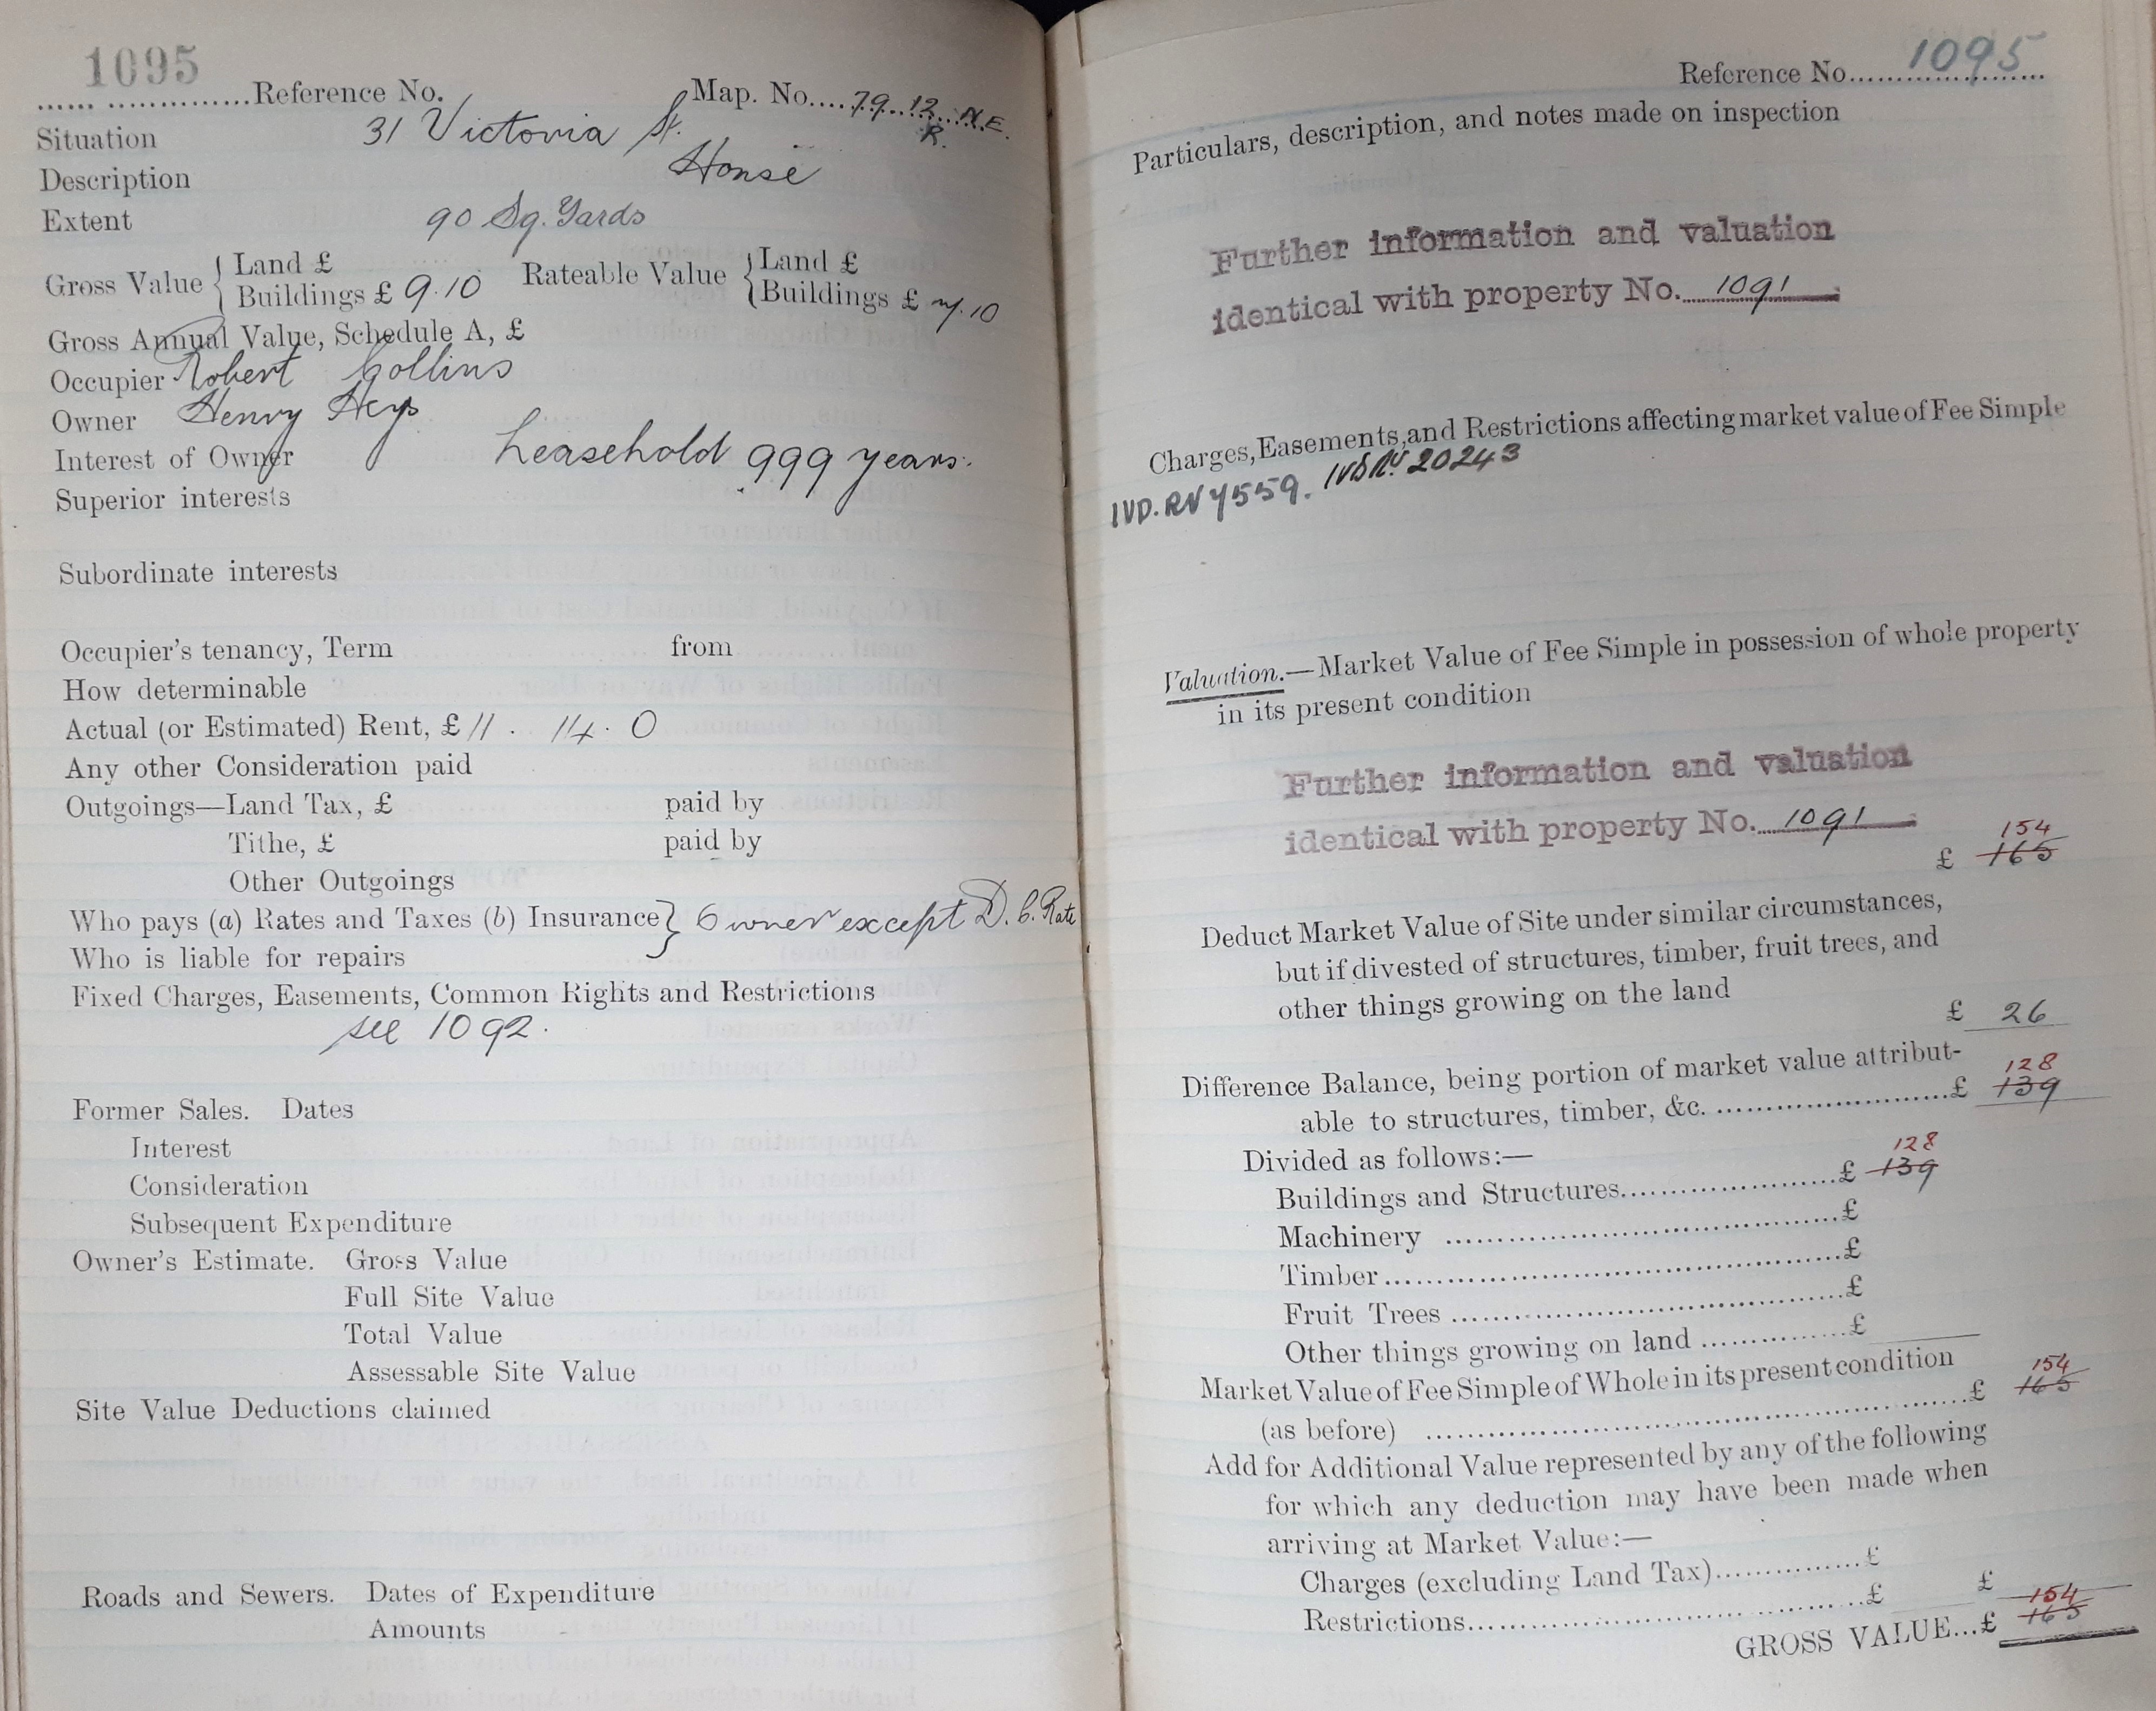 1095
...... ...............Reference No. Map. No.... 79.12.N.E.
R.
Situation 31 Victoria St.
Description House
Extent 90 Sq. Yards
Gross Value { Land £ Rateable Value { Land £
Buildings £ 9.10 Buildings £ 7.10
Gross Annual Value, Schedule A, £
Occupier Robert Collins
Owner Henry Heys
Interest of Owner Leasehold 999 years.
Superior interests
Subordinate interests
Occupier's tenancy, Term from
How determinable
Actual (or Estimated) Rent, £ 11 . 14 . 0
Any other Consideration paid
Outgoings—Land Tax, £ paid by
Tithe, £ paid by
Other Outgoings
Who pays (a) Rates and Taxes (b) Insurance } Owner except D. C. Rate
Who is liable for repairs
Fixed Charges, Easements, Common Rights and Restrictions
see 1092.
Former Sales. Dates
Interest
Consideration
Subsequent Expenditure
Owner's Estimate. Gross Value
Full Site Value
Total Value
Assessable Site Value
Site Value Deductions claimed
Roads and Sewers. Dates of Expenditure
Amounts
Reference No. 1095
Particulars, description, and notes made on inspection
Further information and valuation
identical with property No. 1091
Charges, Easements, and Restrictions affecting market value of Fee Simple
IVD. RN 7559. IVD RN 20243
Valuation.—Market Value of Fee Simple in possession of whole property
in its present condition
Further information and valuation
identical with property No. 1091
154
£ 165
Deduct Market Value of Site under similar circumstances,
but if divested of structures, timber, fruit trees, and
other things growing on the land
£ 26
Difference Balance, being portion of market value attribut-
128
able to structures, timber, &c. ..........................£ 139
Divided as follows:—
128
Buildings and Structures.........................£ 139
Machinery ..............................................£
Timber.....................................................£
Fruit Trees ..............................................£
Other things growing on land .................£
Market Value of Fee Simple of Whole in its present condition
154
(as before) ...............................................................£ 165
Add for Additional Value represented by any of the following
for which any deduction may have been made when
arriving at Market Value:—
Charges (excluding Land Tax)................£
Restrictions..........................................£ £
154
GROSS VALUE...£ 165